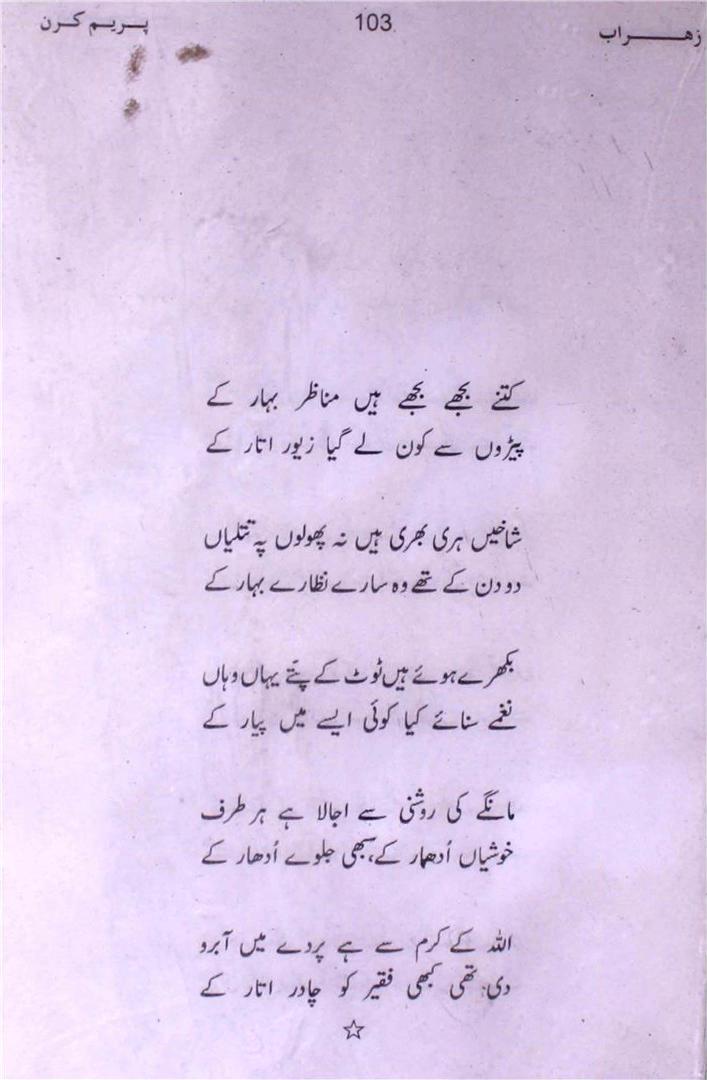 زهراب 103 پریم کرن
کتنے بجھے بجھے ہیں مناظر بہار کے
پیڑوں سے کون لے گیا زیور اتار کے
شاخیں ہری بھری ہیں نہ پھولوں پہ تتلیاں
دو دن کے تھے وہ سارے نظارے بہار کے
بکھرے ہوئے ہیں ٹوٹ کے پتّے یہاں وہاں
نغمے سنائے کیا کوئی ایسے میں پیار کے
مانگے کی روشنی سے اجالا ہے ہر طرف
خوشیاں اُدھار کے، سبھی جلوے اُدھار کے
اللہ کے کرم سے ہے پردے میں آبرو
دی تھی کبھی فقیر کو چادر اتار کے
☆